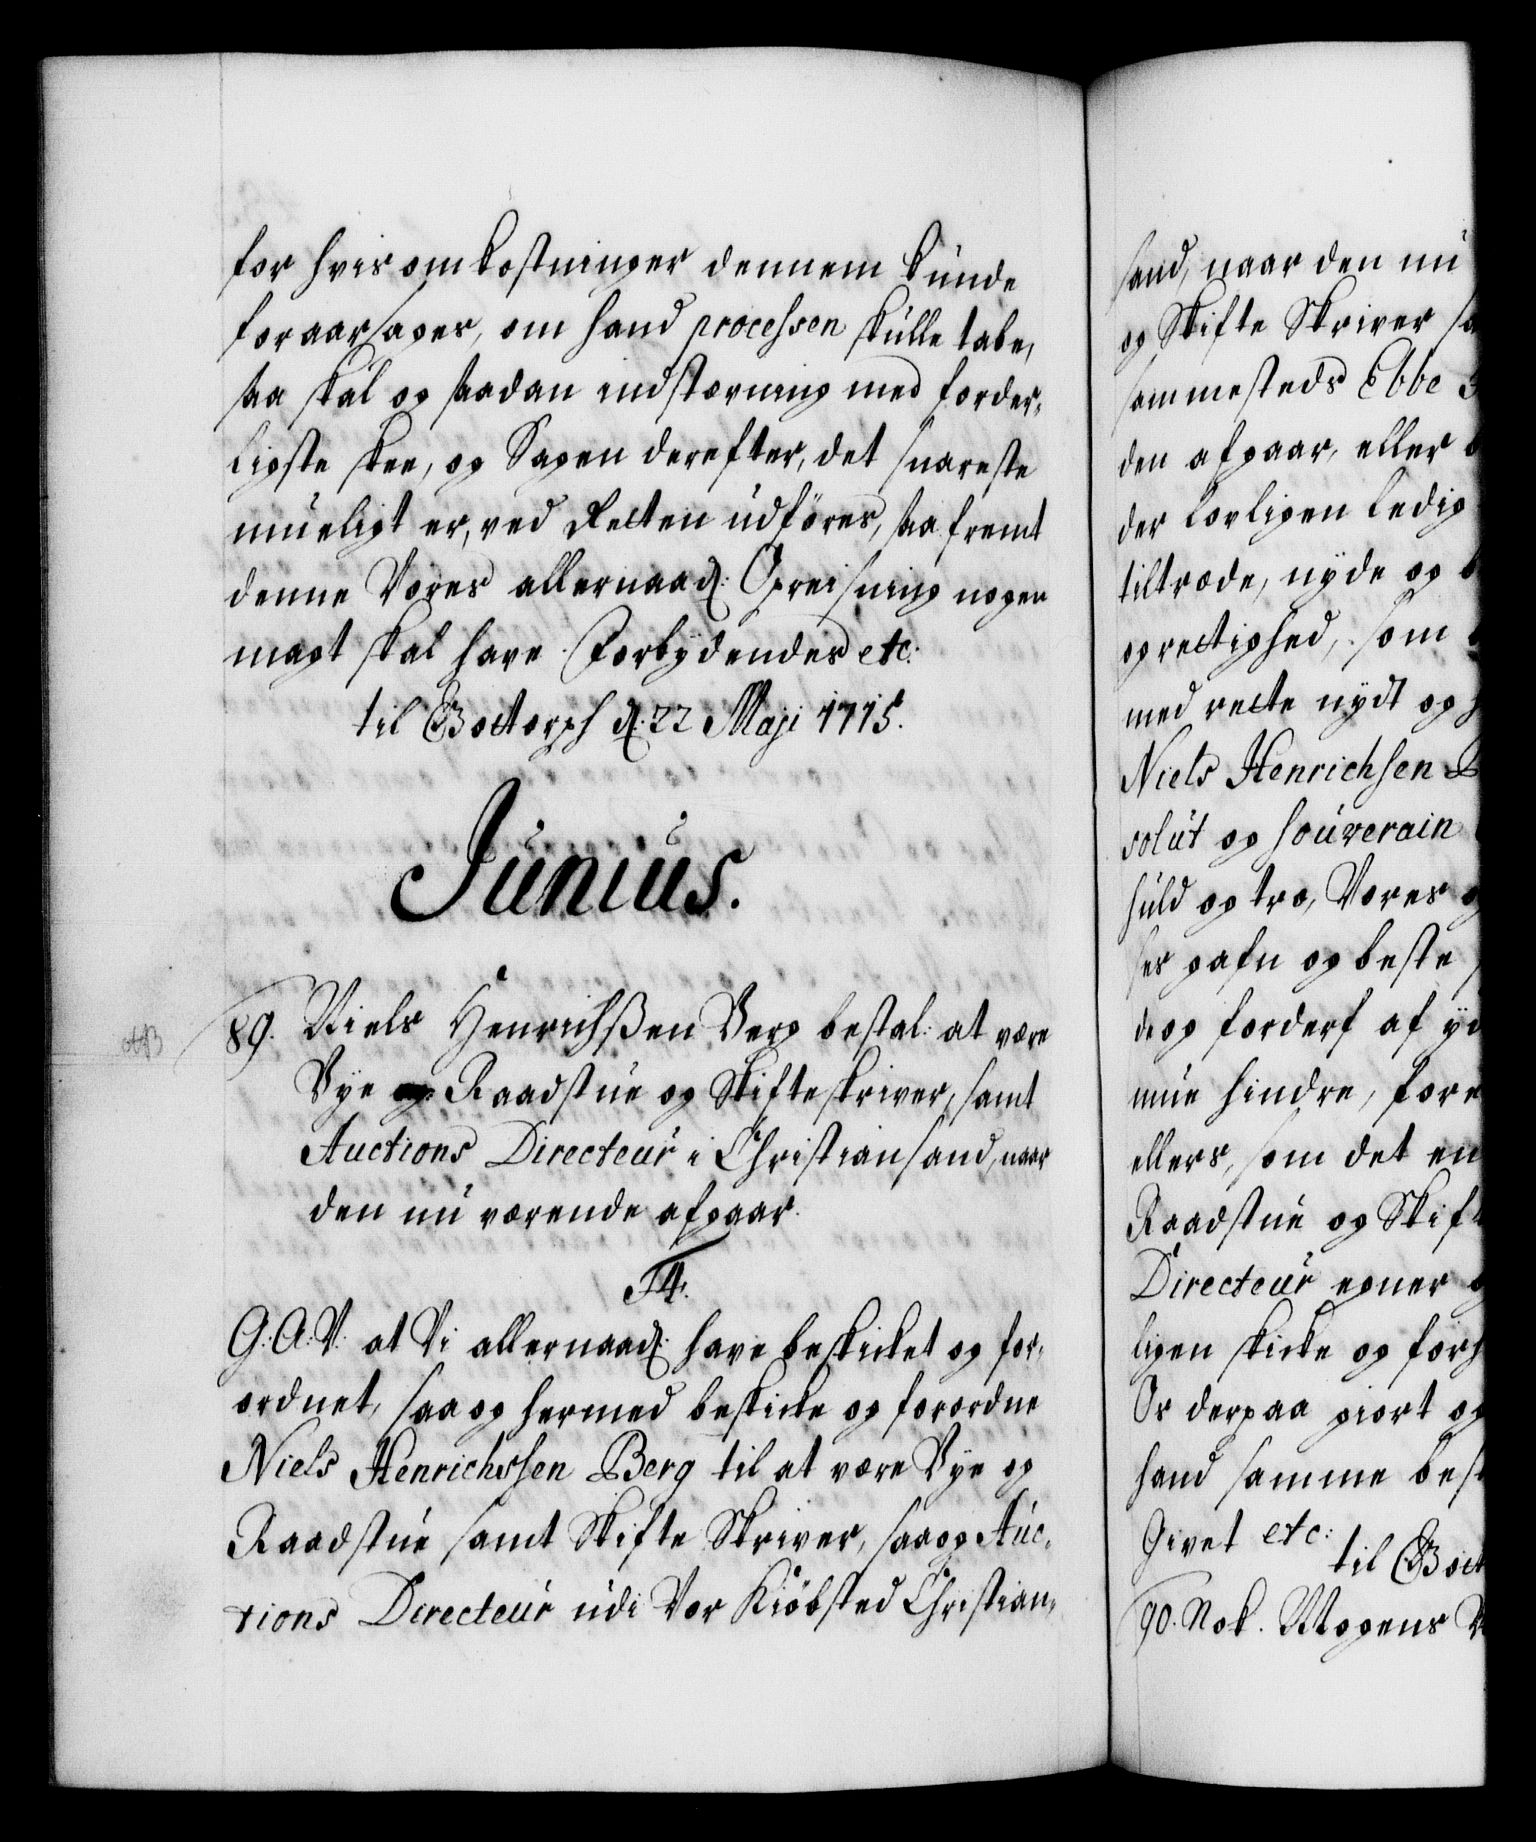 for hvis omkostninger dennem kunde
foraarsages, om hand processen skulle tabe,
saa skal og saadan indstævning med forder-
ligste skee, og Sagen derefter, det snareste
mueligt er, ved Retten udføres, saa fremt
denne Vores allernaad: Opreisning nogen
magt skal have. Forbydendes etc:
til Gottorph d: 22 Maji 1715.
Junius.
89. Niels Henrichßen Berg bestal: at være
Bye Raadstue og Skifteskriver, samt
Auctions Directeur i Christiansand, naar
den nu værende afgaar.
F4.
G: A: V: at Vi allernaad: have beskicket og for-
ordnet, saa og hermed beskicke og forordne
Niels Henrichssen Berg til at være Bye og
Raadstue samt Skifte Skriver, saa og Auc-
tions Directeur udi Vor Kiøbsted Christian-
sand, naar den nu
og Skifte Skriver sa
sammesteds Ebbe
den afgaar, eller
der lovligen ledig
tiltræde, nyde og
oprectighed, som
med rette nydt og
Niels Henrichsen B
solut og souverain
huld og tro, Vores
ses gafn og beste
de og forderf af yd
mue hindre, fore
ellers, som det en
Raadstue og Skift
Directeur egner
ligen skicke og forh
Or derpaa giort og
hand samme best
Givet etc:
til Gott
90. Nok. Mogens